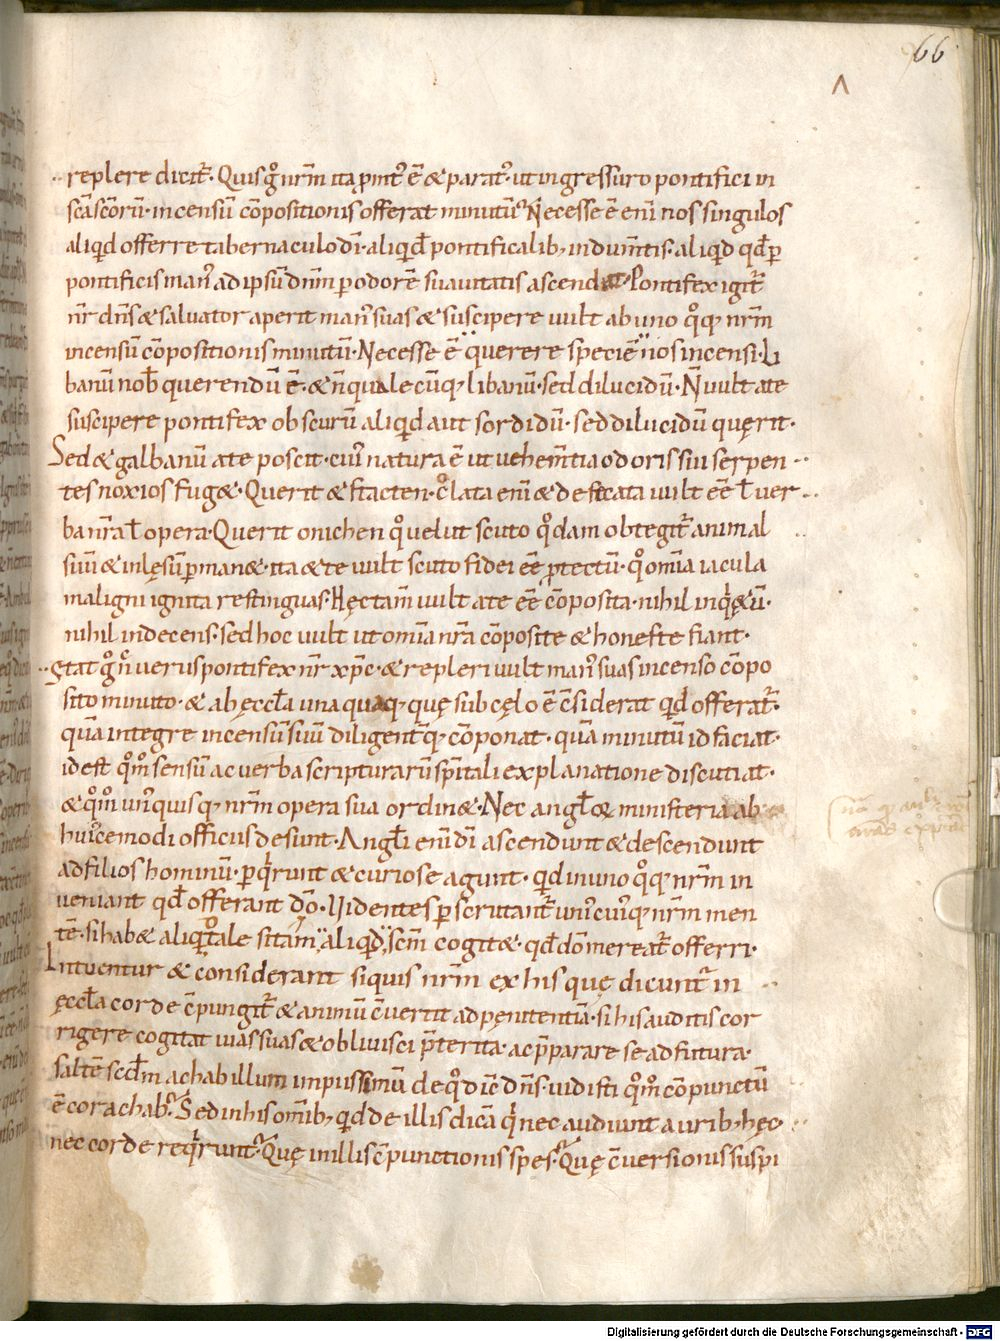 66
replere dicit᷒. Quis g̊ nr̄m ita p̱mt᷒ ē & parat᷒. ut ingressuro pontifici in
sc̄a sc̄oru᷒. incensū cōpositionis offerat minutū? Necesse ē eni᷒ nos singulos
aliqid offerre tabernaculo dī. aliqid pontificalib; indum̄tis. aliqid qd̄ ꝑ
pontificis man᷒ ad ipsū dn̄m ꝑ odorē suauitatis ascendat. Pontifex igit᷒
nr̄ dn̄s & saluator aperit man᷒ suas & suscipere uult ab uno qͦq; nr̄m
incensū cōpositionis minutū. Necesse ē querere speciē nos incensi. Li
banū nob̄ querendū ē. & n̄ quale cūq; libanū. sed dilucidū. N̄ uult a te
suscipere pontifex obscurū aliqid aut sordidū. sed dilucidū quęrit.
Sed & galbanū a te poscit. cui᷒ natura ē ut uehem̄tia odoris sui serpen
tes noxios fug&. Querit & stacten. cͦlata eni᷒ & defecata uult eē ł uer
ba nr̄a ł opera. Querit onichen qͦ uelut scuto qͦdam obtegit᷒ animal
suū & inlęsū ꝑman&. ita & te uult scuto fidei eē ꝓtectū. qͦ om̄ia iacula
maligni ignita restinguas. Hęc tam̄ uult a te eē cōposita. nihil inqi&ū.
nihil indecens. sed hoc uult ut om̄ia nr̄a cōposite & honeste fiant.
Stat g̊ nc̄ uerus pontifex nr̄ xp̄c. & repleri uult man᷒ suas incenso cōpo
sito minuto. & ab ęccła una quaq; quę sub cęlo ē c̄siderat qid offerat᷒.
quā integre incensū suū diligent᷒q; cōponat. quā minutū id faciat.
id est qͦm̊ sensū ac uerba scripturarū sp̄itali explanatione discutiat.
& qͦm̊ un᷒quisq; nr̄m opera sua ordin&. Nec angł& ministeria ab
hui᷒cemodi officiis desunt. Angłi eni᷒ dī ascendunt & descendunt
ad filios hominū. ꝑqirunt & curiose agunt. qid in uno qͦq; nr̄m in
ueniant qd̄ offerant dō. Uident & ꝑscrutant᷒ uni᷒cui᷒q; nr̄m men
tē. si hab& aliqid tale si tam aliqid sc̄m cogit&. qd̄ dō mereat᷒ offerri.
Intuentur & considerant si quis nr̄m ex his quę dicunt᷒ in
ęccła corde c̄pungit᷒ & animū c̄uertit ad pęnitentiā. si his auditis cor
rigere cogitat uias suas & obliuisci p̄terita. ac p̄parare se ad futura.
saltē scd̄m achab illum impiissimū de qͦ dic̄ dn̄s. uidisti qͦm̊ cōpunctū
ē cor achab? Sed in his om̄ib; qid de illis dicā qi nec audiunt aurib; hęc.
nec corde reqirunt? Quę in illis c̄punctionis spes? Quę c̄uersionis suspi
Digitalisierung gefördert durch die Deutsche Forschungsgemeinschaft - DFG